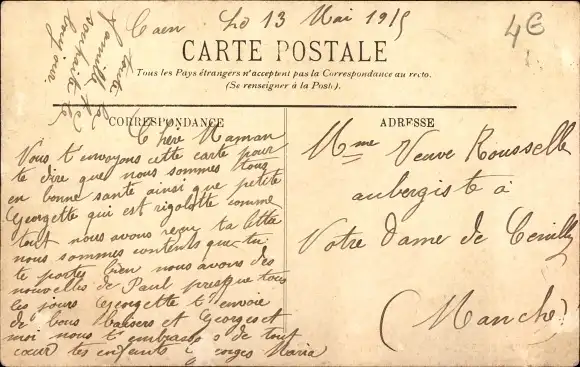 Caen le 13 Mai 1915
4€
CARTE POSTALE
Tous les Pays étrangers n'acceptent pas la Correspondance au recto.
(Se renseigner à la Poste).
CORRESPONDANCE
ADRESSE
toute la
famille te
souhaite le
bonjour
Chère Maman
Vous t envoyons cette carte pour
te dire que nous sommes tous
en bonne santé ainsi que petite
Georgette qui est rigolotte comme
tout nous avons reçu ta lettre
nous sommes contents que tu
te portes bien nous avons des
nouvelles de Paul presque tous
les jours Georgette t envoie
de bons baisers et Georges et
moi nous t embrassons de tout
cœur tes enfants Georges Maria
Mme Veuve Rousselle
aubergiste à
Notre Dame de Cenilly
(Manche)